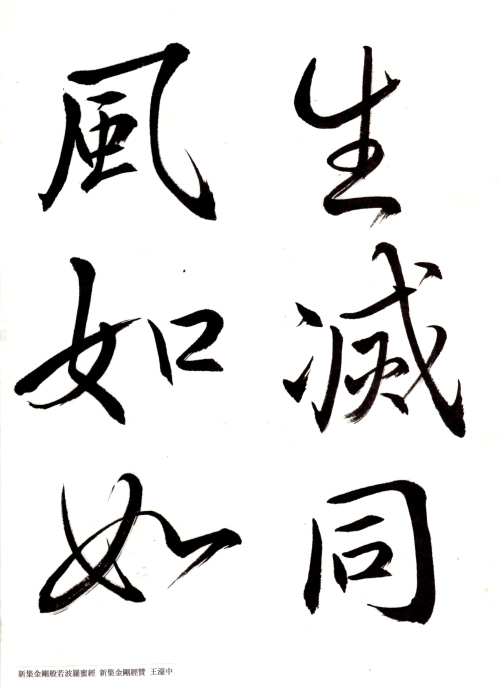 生滅同
風如如
新集金剛般若波羅蜜經 新集金剛經贊 王濠中